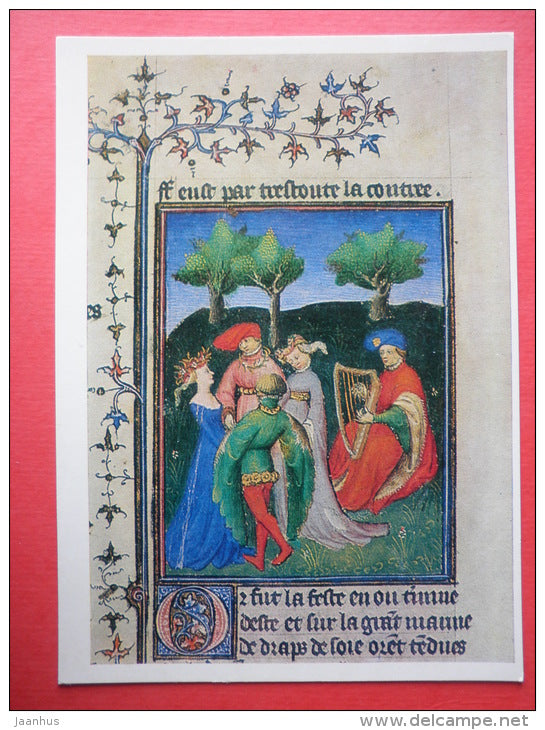 ff eust par trestoute la contree.
es
Or fut la feste en ou tinnue
deste et sur la grãt maime
de draps de soie oret tẽdues
jaanhus
© www.delcampe.net